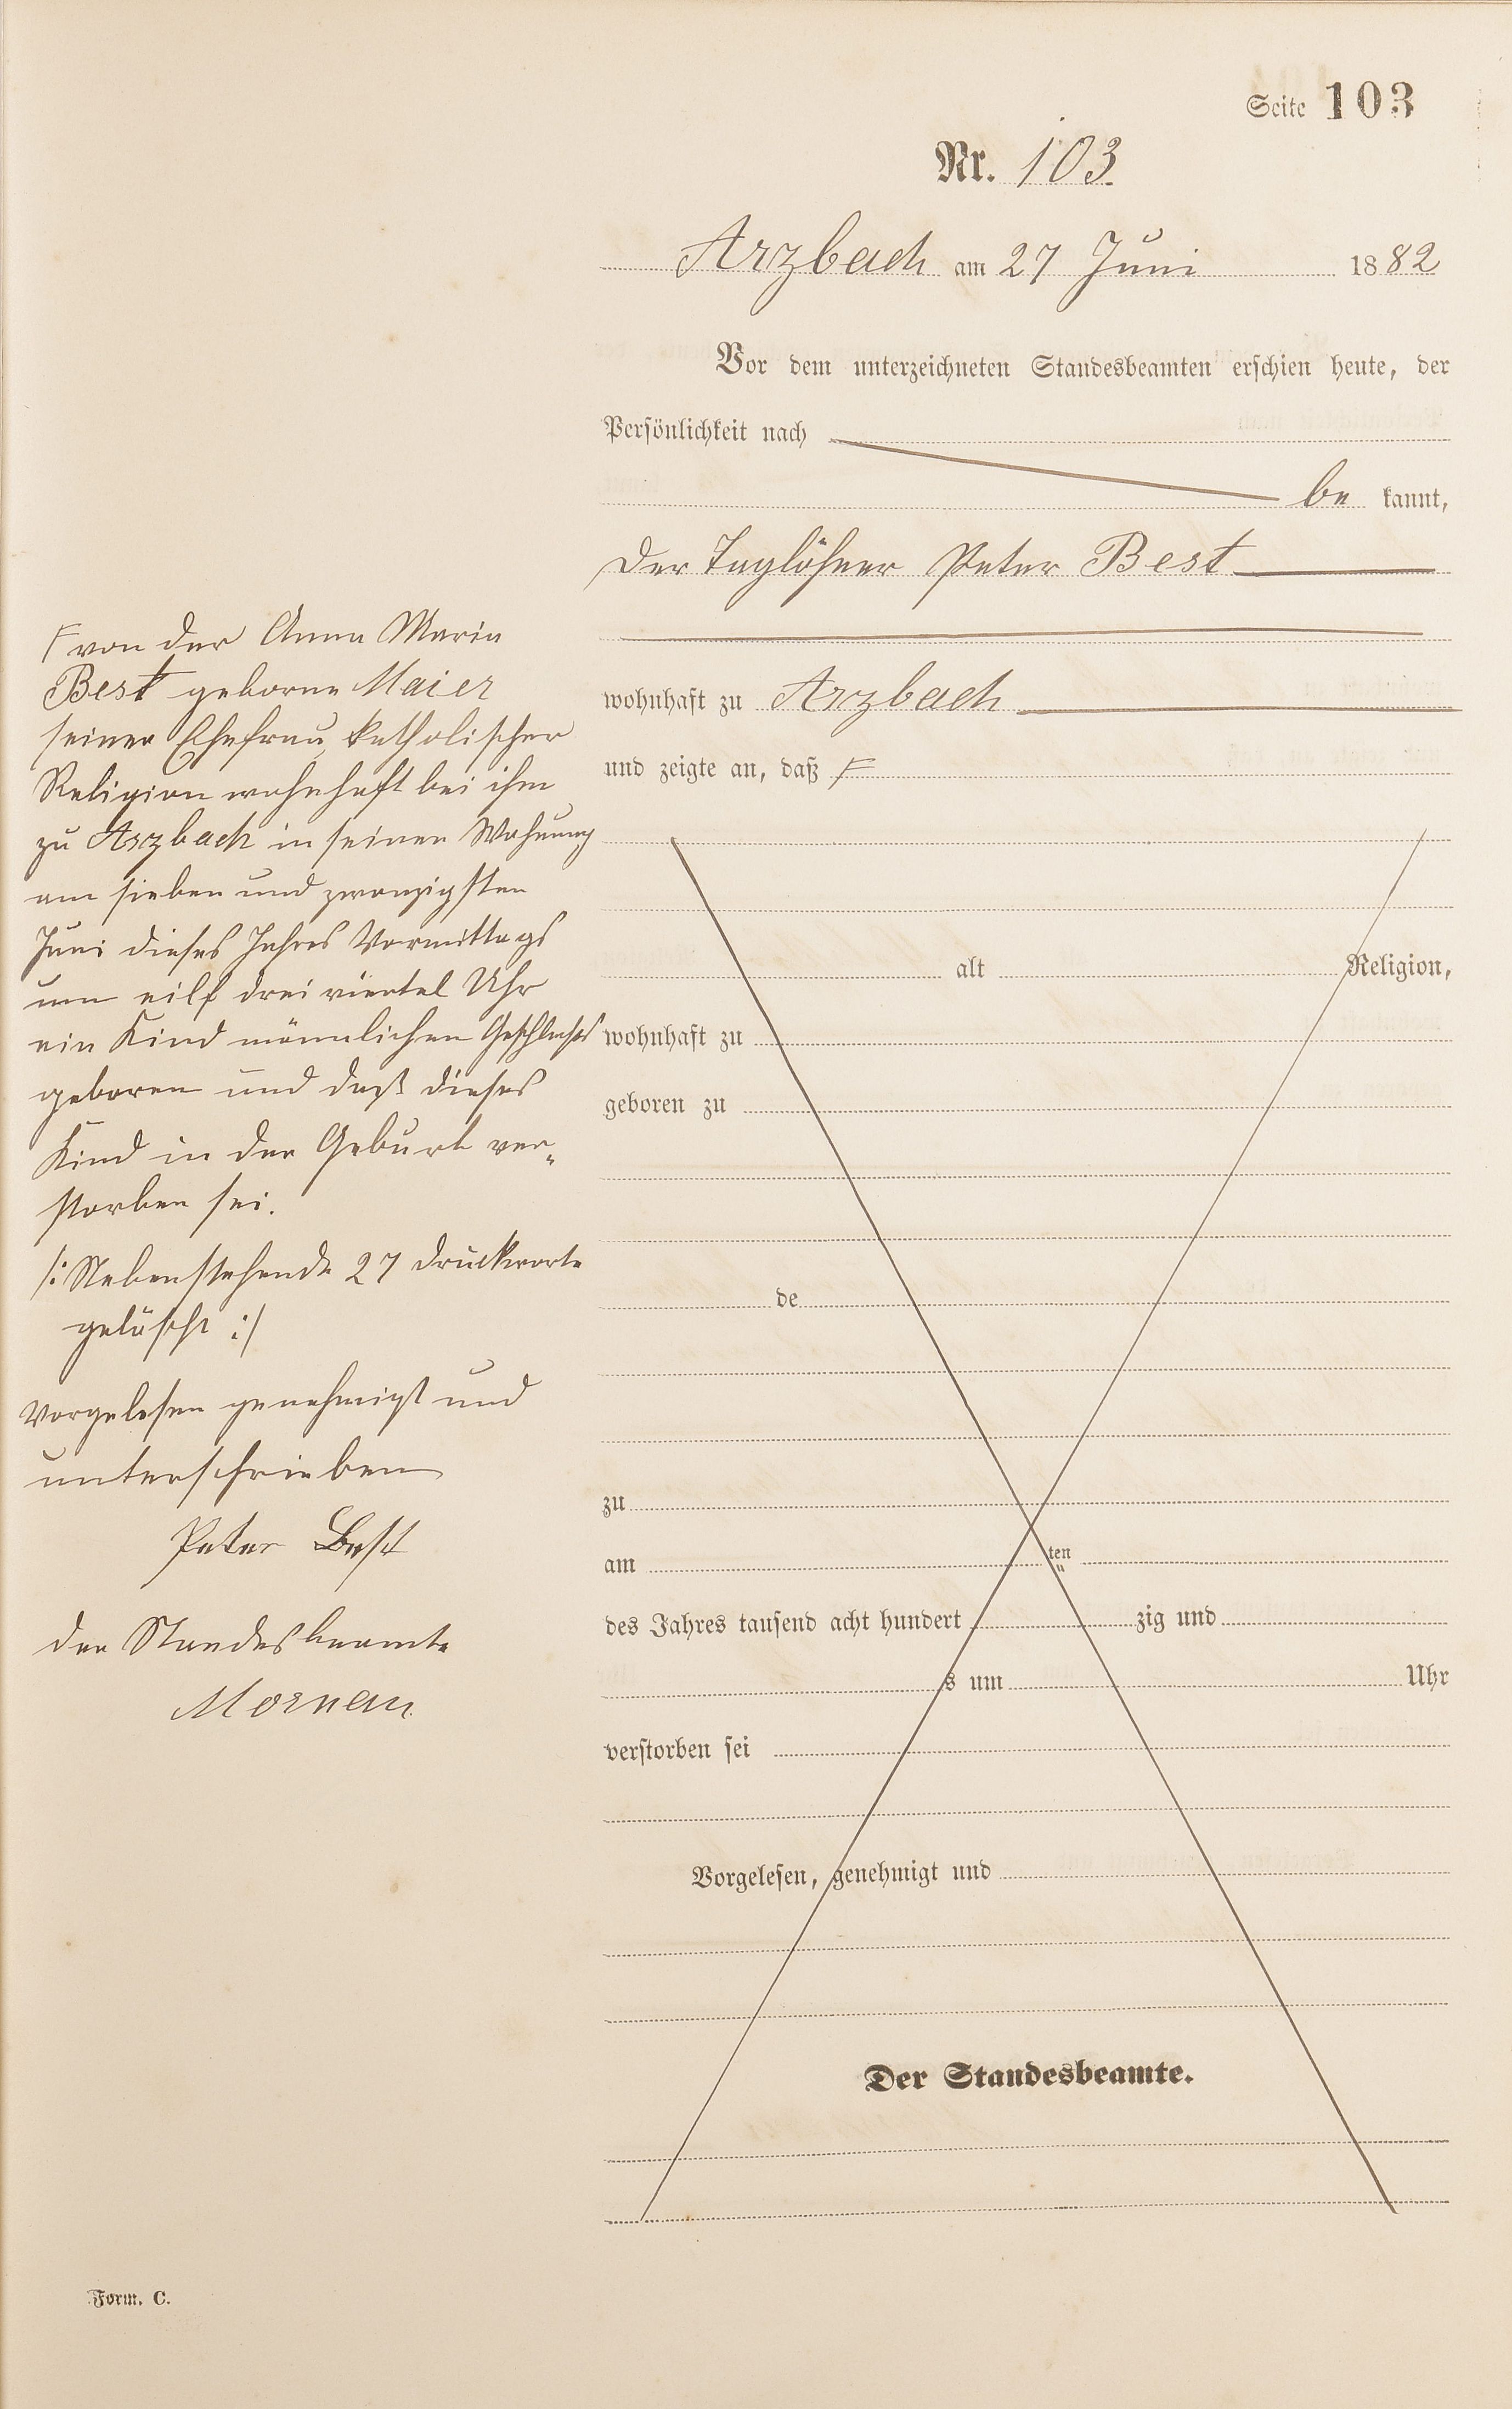 Seite 103
Nr. 103
Arzbach am 27 Juni 1882
Vor dem unterzeichneten Standesbeamten erschien heute, der
Persönlichkeit nach
be kannt,
der Taglöhner Peter Best
wohnhaft zu Arzbach
und zeigte an, daß F
alt Religion,
wohnhaft zu
geboren zu
de
zu
am ten
des Jahres tausend acht hundert zig und
s um Uhr
verstorben sei
Vorgelesen, genehmigt und
Der Standesbeamte.
F von der Anna Maria
Best geborne Maier
seiner Ehefrau, katholischer
Religion wohnhaft bei ihm
zu Arzbach in seiner Wohnung
am sieben und zwanzigsten
Juni dieses Jahres Vormittags
um eilf dreiviertel Uhr
ein Kind männlichen Geschlechts
geboren und daß dieses
Kind in der Geburt ver„
storben sei.
/: Nebenstehende 27 Druckworte
gelöscht :/
Vorgelesen genehmigt und
unterschrieben
Peter Best
der Standesbeamte
Form. C.